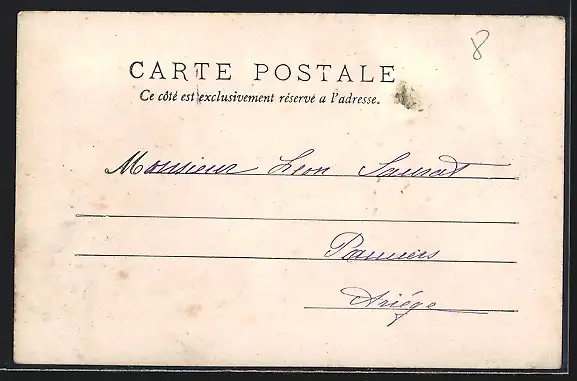 8
CARTE POSTALE
Ce côté est exclusivement réservé a l'adresse.
Monsieur Léon Saurat
Pamiers
Ariége